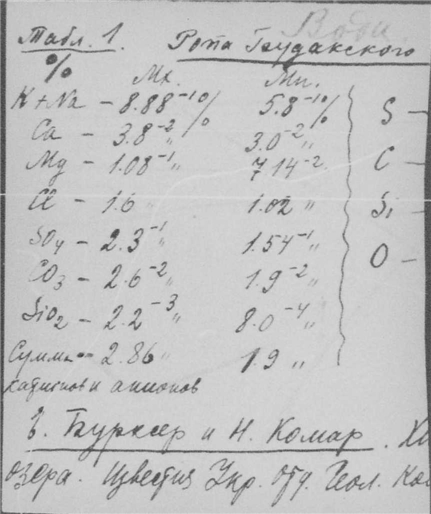 Води.
Табл. 1. Ропа Гнудакского
% Мх. Мin.
K+Na – 8.88⁻¹% 5.8⁻¹% S –
Ca – 3.8⁻² „ 3.0⁻² „
Mg – 1.08⁻¹ „ 7.14⁻² C –
Cl – 1.6 1.02 „ Si –
SO₄ – 2.3⁻¹ „ 1.54⁻¹ „ O –
CO₃ – 2.6⁻² „ 1.9⁻² „
SiO₂ – 2.2⁻³ „ 8.0⁻⁴ „
Сумма – 2.86 „ 1.9 „
катионов и анионов
Бурксер и Н. Комар.
озера. Известия Укр. отд. Геол. Ком